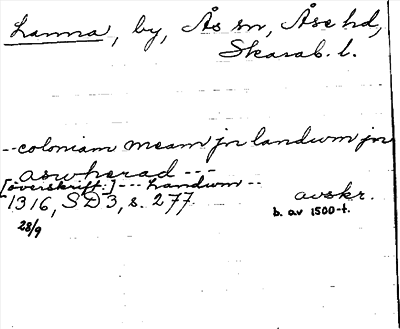 Lanna, by, Ås sn, Åse hd,
Skarab. l.
--coloniam meam jn landwm jn
aswherad ---
[överskrift:] --- Landwm --
1316, SD3, s. 277. avskr.
b. av 1500-t.
28/9